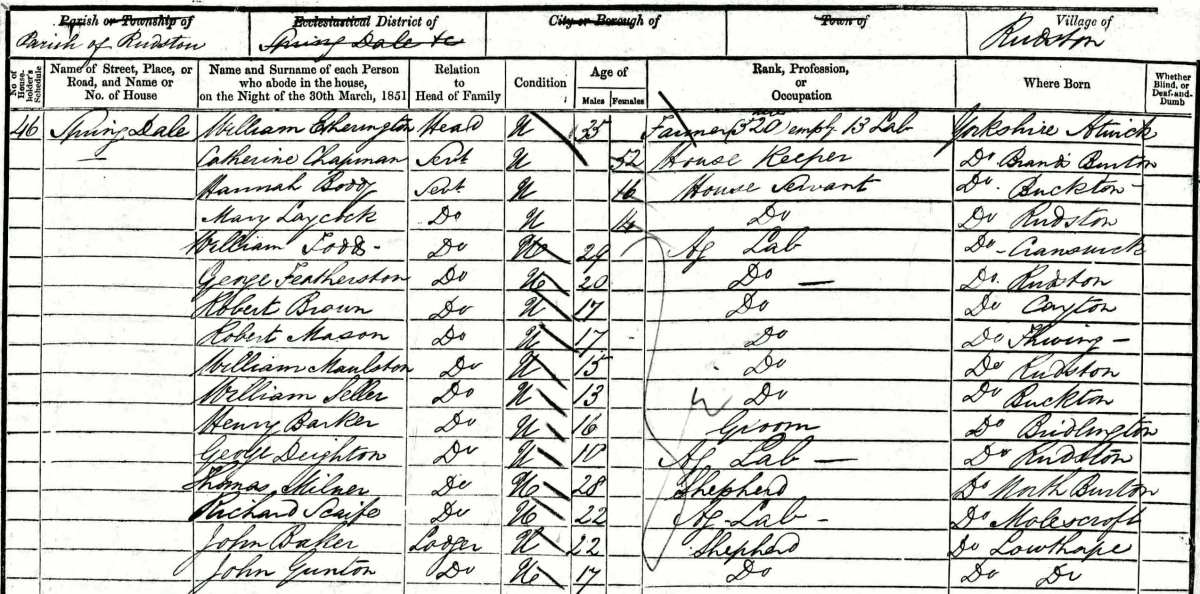 Parish or Township of Ecclesiastical District of City or Borough of Town of Village of
Parish of Rudston Spring Dale &c Rudston
No of House-holder's Schedule Name of Street, Place, or Road, and Name or No. of House Name and Surname of each Person who abode in the house, on the Night of the 30th March, 1851 Relation to Head of Family Condition Age of Males Females Rank, Profession, or Occupation Where Born Whether Blind, or Deaf-and-Dumb
46 Spring Dale William Etherington Head U 35 Farmer (320 acres) emply 13 Lab Yorkshire Atwick
— Catherine Chapman Servt U 52 House Keeper Do Brands Burton
Hannah Servt U 16 House Servant Do. Buckton
Mary Laycock Do U 14 Do Do Rudston
William Todd Do U 29 Ag Lab Do Cranswick
George Featherston Do U 20 Do — Do. Rudston
Robert Brown Do U 17 Do Do Cayton
Robert Mason Do U 17 Do Do Thwing —
William Maulston Do U 15 Do Do Rudston
William Seller Do U 13 Do Do Buckton
Henry Barker Do U 16 Groom Do Bridlington
George Deighton Do U Ag Lab — Do Rudston
Thomas Milner Do U 28 Shepherd Do North Burton
Richard Scaife Do U 22 Ag Lab - Do Molescroft
John Baker Lodger U 22 Shepherd Do Lowthape
John Gunton Do U 17 Do Do Do